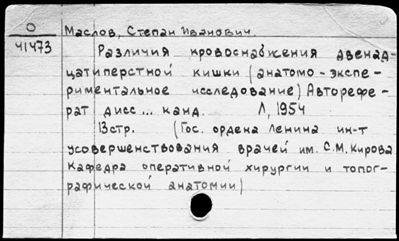 О
41473
Маслов, Степан Иванович.
Различия кровоснабжения двенад-
цатиперстной кишки (анатомо-экспе-
риментальное исследование) Авторефе-
рат дисс... канд. Л, 1954
13стр. (Гос. ордена Ленина ин-т
усовершенствования врачей им. С.М. Кирова.
Кафедра оперативной хирургии и топог-
рафической анатомии)